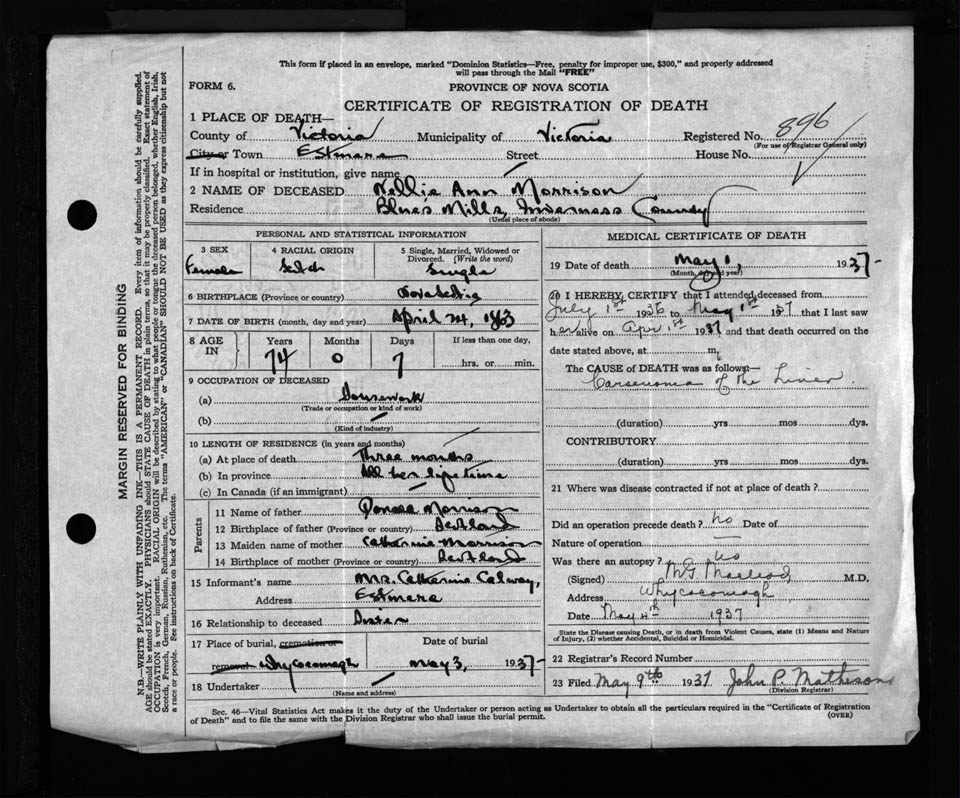 This form if placed in an envelope, marked "Dominion Statistics—Free, penalty for improper use, $300," and properly addressed
will pass through the Mail "FREE"
FORM 6.
PROVINCE OF NOVA SCOTIA
CERTIFICATE OF REGISTRATION OF DEATH
1 PLACE OF DEATH—
County of Victoria Municipality of Victoria Registered No. 896
(For use of Registrar General only)
City or Town Estmere Street House No.
If in hospital or institution, give name
2 NAME OF DECEASED Nellie Ann Morrison
Residence Blues Mills, Inverness County
(Usual place of abode)
PERSONAL AND STATISTICAL INFORMATION
3 SEX 4 RACIAL ORIGIN 5 Single, Married, Widowed or
Divorced. (Write the word)
Female Scotch Single
6 BIRTHPLACE (Province or country) Nova Scotia
7 DATE OF BIRTH (month, day and year) April 24, 1863
8 AGE IN Years Months Days If less than one day,
74 0 7 hrs. or min.
9 OCCUPATION OF DECEASED
(a) Housework
(Trade or occupation or kind of work)
(b)
(Kind of industry)
10 LENGTH OF RESIDENCE (in years and months)
(a) At place of death Three months
(b) In province All her life time
(c) In Canada (if an immigrant)
Parents
11 Name of father Morrison
12 Birthplace of father (Province or country) Scotland
13 Maiden name of mother Catherine Morrison
14 Birthplace of mother (Province or country) Scotland
15 Informant's name Mrs. Catherine Calway,
Address Estmere
16 Relationship to deceased Sister
17 Place of burial, cremation or Date of burial
removal Whycocomagh May 3, 1937
18 Undertaker
(Name and address)
MEDICAL CERTIFICATE OF DEATH
19 Date of death May 1, 1937
(Month, day and year)
20 I HEREBY CERTIFY that I attended deceased from
July 1st 1936 to May 1st 1937 that I last saw
her alive on Apr 1st 1937 and that death occurred on the
date stated above, at m.
The CAUSE of DEATH was as follows:—
Carsenoma of the Liver
(duration) yrs mos dys.
CONTRIBUTORY
(duration) yrs mos dys.
21 Where was disease contracted if not at place of death?
Did an operation precede death? no Date of
Nature of operation
Was there an autopsy? no
(Signed) MG Macleod M.D.
Address Whycocomagh
Date May 4th 1937
State the Disease causing Death, or in death from Violent Causes, state (1) Means and Nature
of Injury, (2) whether Accidental, Suicidal or Homicidal.
22 Registrar's Record Number
23 Filed May 9th 1937 John P. Matheson
(Division Registrar)
Sec. 46—Vital Statistics Act makes it the duty of the Undertaker or person acting as Undertaker to obtain all the particulars required in the "Certificate of Registration
of Death" and to file the same with the Division Registrar who shall issue the burial permit.
(OVER)
MARGIN RESERVED FOR BINDING
N.B.—WRITE PLAINLY WITH UNFADING INK—THIS IS A PERMANENT RECORD. Every item of information should be carefully supplied.
AGE should be stated EXACTLY. PHYSICIANS should STATE CAUSE OF DEATH in plain terms, so that it may be properly classified. Exact statement of
OCCUPATION is very important. RACIAL ORIGIN will be described by stating to what people or tongue the deceased person belonged, whether English, Irish,
Scotch, French, German, Russian, Ruthenian, etc. The terms "AMERICAN" or "CANADIAN" SHOULD NOT BE USED as they express citizenship but not
a race or people. See instructions on back of Certificate.